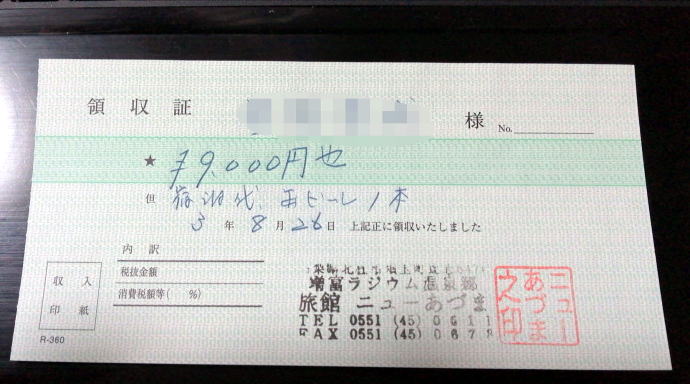 領収証 様 No.
★ ¥9,000円也
但 宿泊代、缶ビール1本
3年8月26日 上記正に領収いたしました
内訳
税抜金額
消費税額等( %)
収入
印紙
R-360
増富ラジウム温泉郷
旅館 ニューあづま
TEL 0551 (45) 0611
FAX 0551 (45) 067
ニュー
あづま
之印